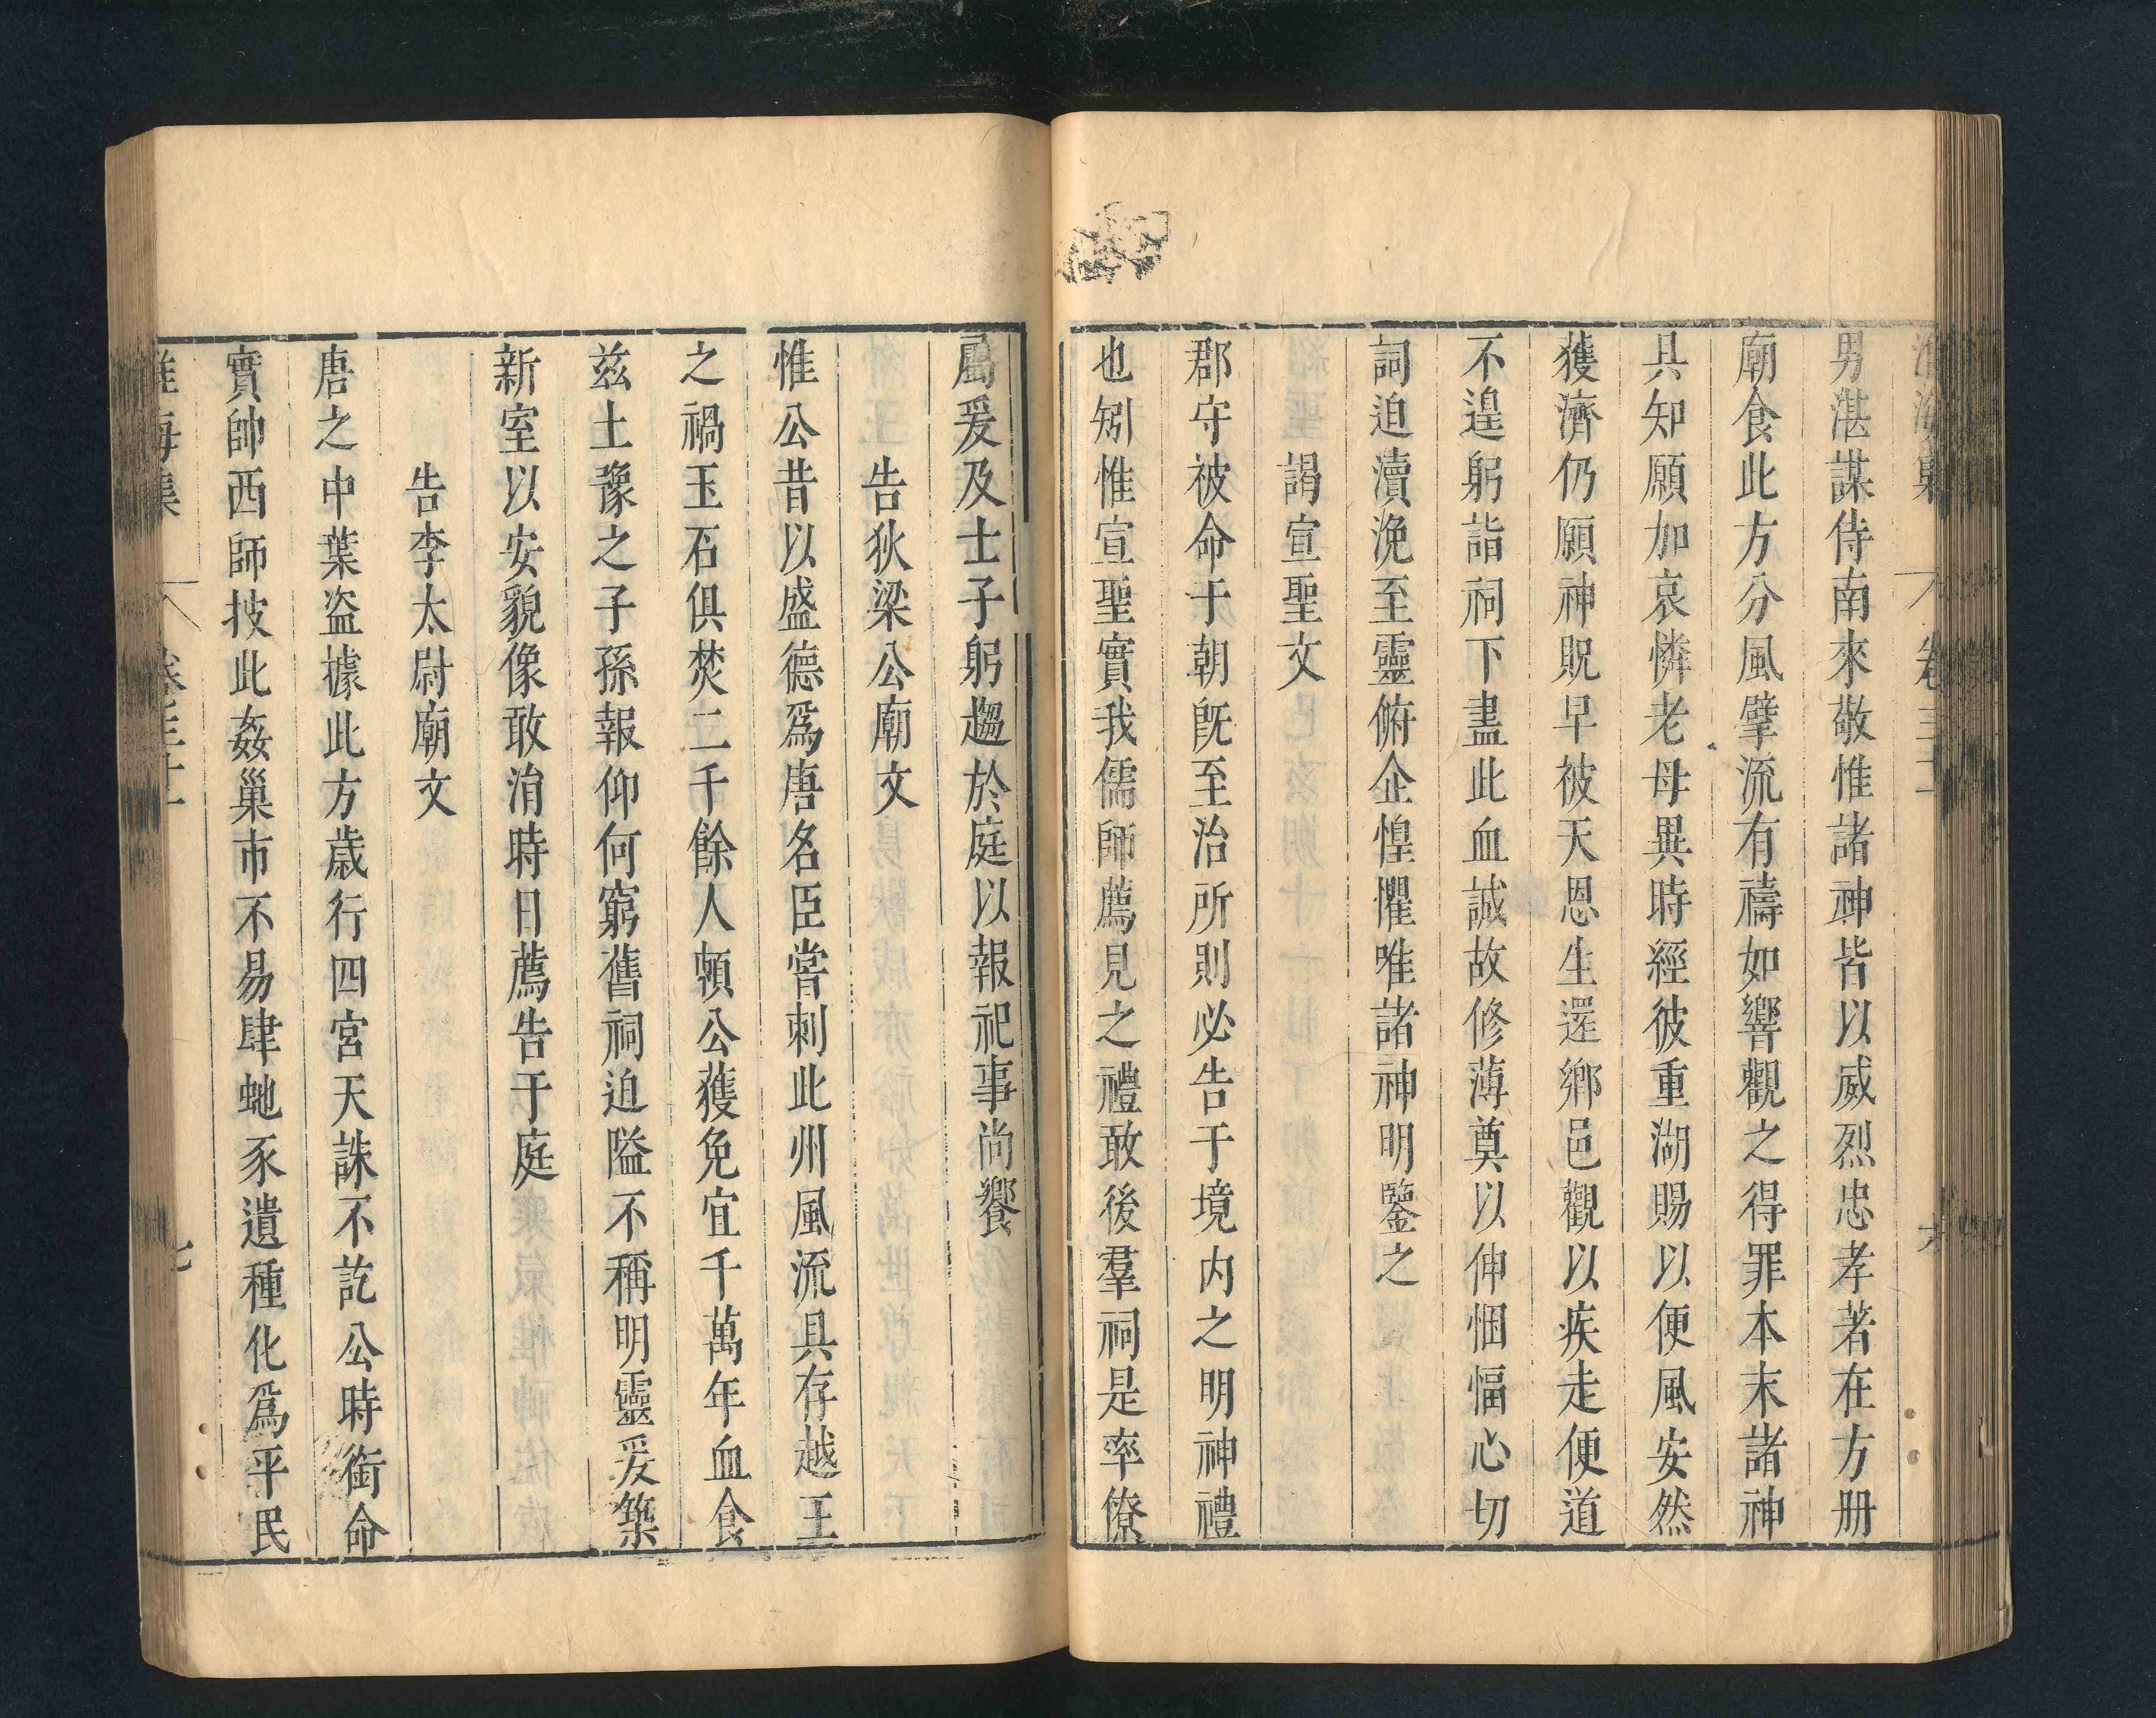 淮海集 卷三十一 六
男湛謀侍南來敬惟諸神皆以威烈忠孝著在方册
廟食此方分風擘流有禱如響觀之得罪本末諸神
具知願加哀憐老母異時經彼重湖賜以便風安然
獲濟仍願神貺早被天恩生還鄉邑觀以疾走便道
不遑躬詣祠下盡此血誠故修薄奠以伸悃愊心切
詞迫瀆浼至靈俯企惶懼唯諸神明鑒之
謁宣聖文
郡守被命于朝旣至治所則必告于境内之明神禮
也矧惟宣聖實我儒師薦見之禮敢後羣祠是率僚
屬爰及士子躬趨於庭以報祀事尚饗
告狄梁公廟文
惟公昔以盛德爲唐名臣嘗刺此州風流具存越王
之禍玉石俱焚二千餘人頼公獲免宜千萬年血食
兹土豫之子孫報仰何窮舊祠迫隘不稱明靈爰築
新室以安貌像敢涓時日薦告于庭
告李太尉廟文
唐之中葉盗據此方歲行四宮天誅不訖公時銜命
實帥西師披此姦巢市不易肆虵豕遺種化爲平民
淮海集 卷三十一 七